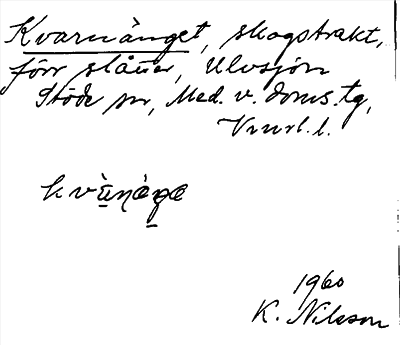 Kvarnänget, skogstrakt,
förr slåtter, Ulvsjön
Stöde sn, Med. v. doms. tg,
Vnrl. l.
1960
K. Nilsson